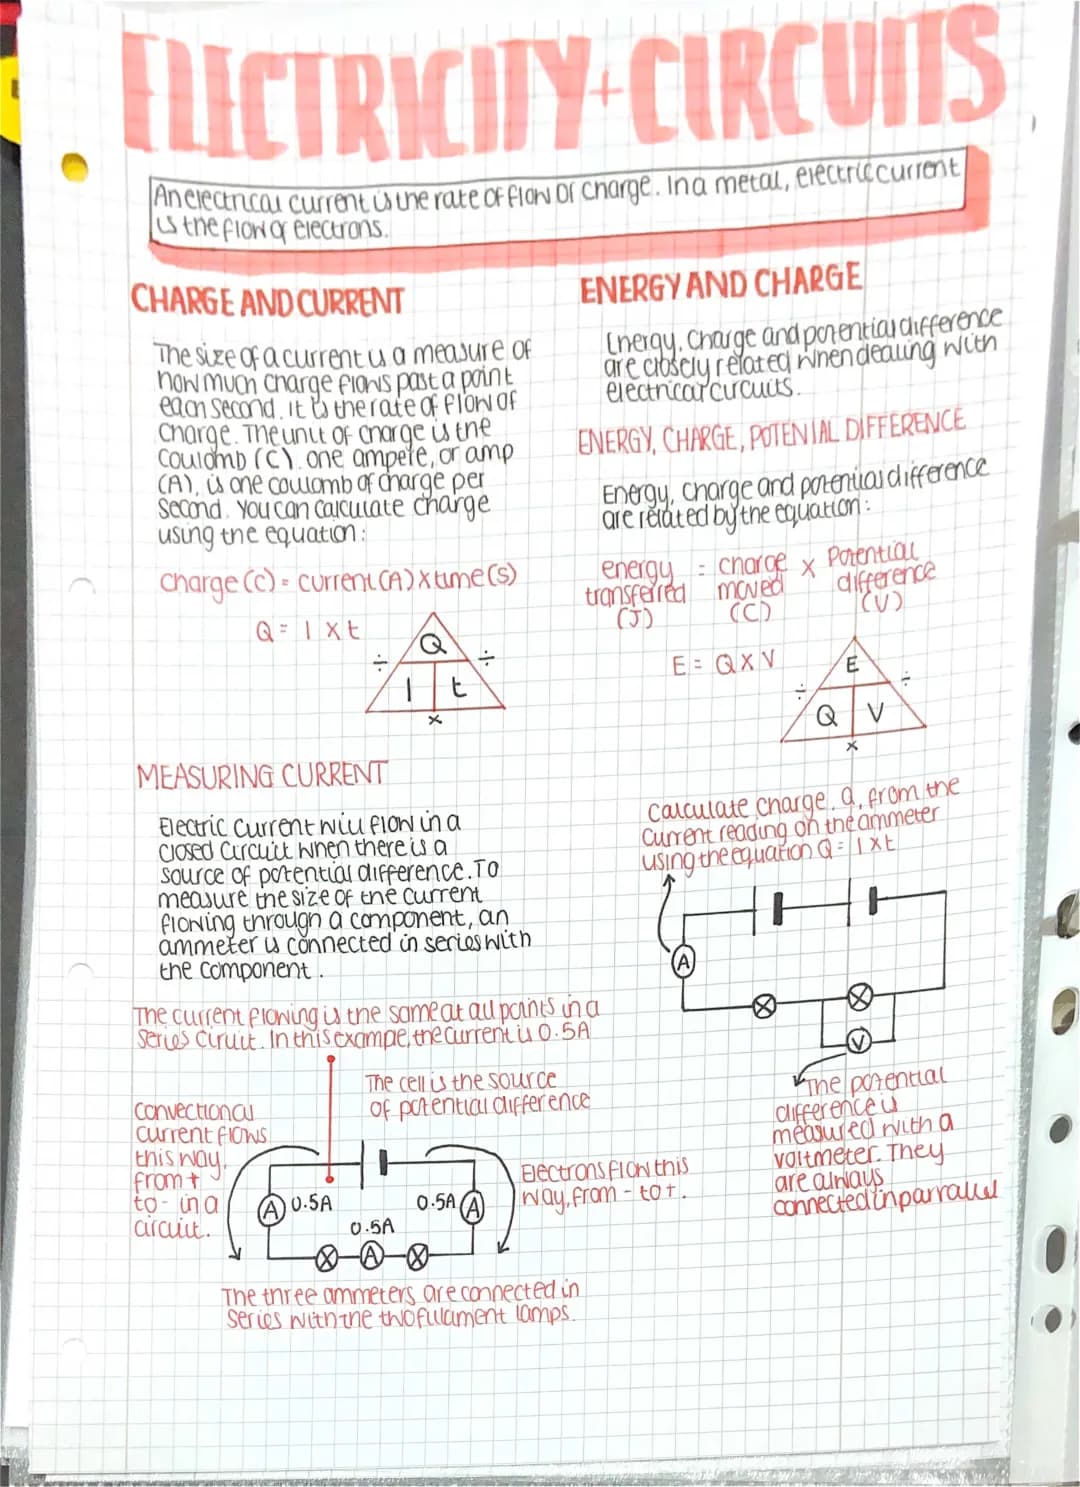 ELECTRICITY+CIRCUITS
An electrical current is the rate of flow of charge. In a metal, electric current
is the flow of electrons.
CHARGE AND CURRENT
The size of a current is a measure of
how much charge flows past a point
each second. It is the rate of flow of
Charge. The unit of charge is the
Coulomb (C). one ampere, or amp
(A), is one coulomb of charge per
Second. You can calculate charge
using the equation:
charge (c) = current (A) x time (s)
Q = I x t
Q
÷ ÷
I t
x
MEASURING CURRENT
Electric current will flow in a
closed circuit when there is a
source of potential difference. To
measure the size of the current
flowing through a component, an
ammeter is connected in series with
the component.
The current flowing is the same at all points in a
series ciruit. In this exampe, the current is 0.5A
The cell is the source
of potential difference
Convectional
current flows
this way,
from +
to - in a
circuit.
A 0.5A
0.5A A
0.5A
A
Electrons flow this
way, from - to +.
The three ammeters are connected in
series with the two fulament lamps.
ENERGY AND CHARGE
Energy, Charge and potential difference
are closely related when dealing with
electrical circuits.
ENERGY, CHARGE, POTENIAL DIFFERENCE
Energy, charge and potential difference
are related by the equation:
energy = charge x Potential
transferred moved difference
(J) (C) (V)
E = Q x V
E
÷ ÷
Q V
x
Calculate charge, Q, from the
current reading on the ammeter
using the equation Q = I x t
A
V
The potential
difference is
measured with a
voltmeter. They
are always
connected in parrallel